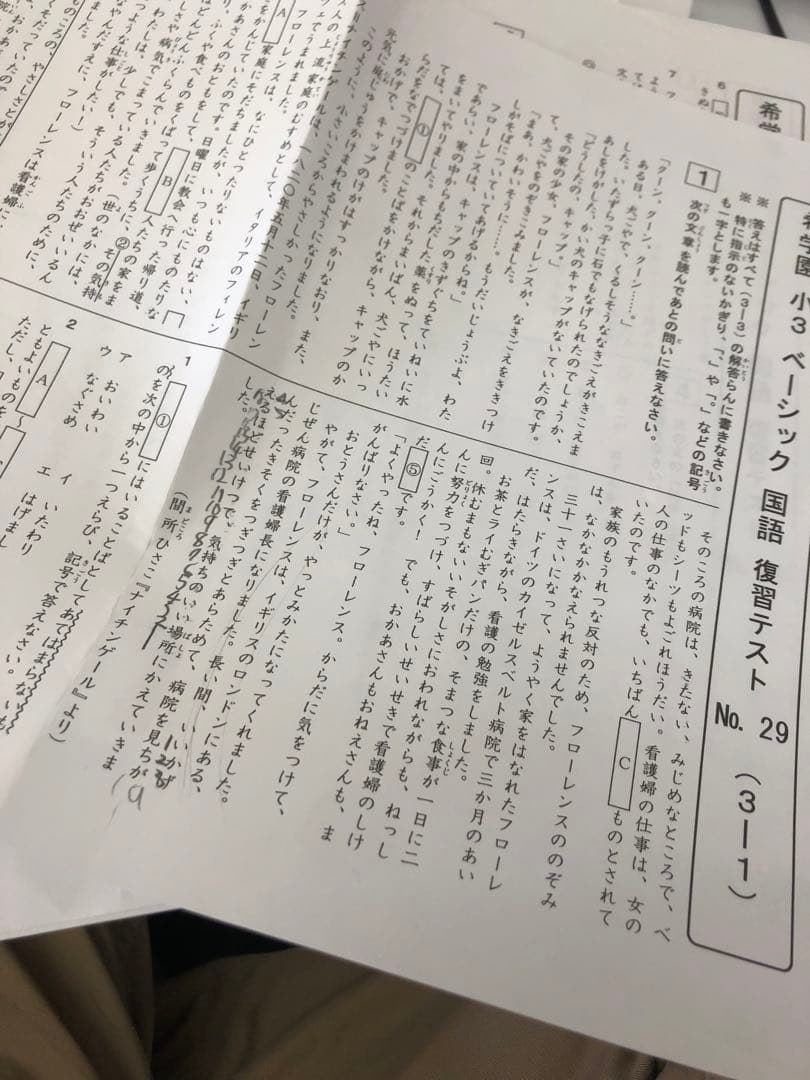 希学園 小3 ベーシック 国語 復習テスト No. 29 (3-1)
※ 答えはすべて(3-3)の解答らんに書きなさい。
※ 特に指示のないかぎり、「、」や「。」などの記号
も一字とします。
1 次の文章を読んであとの問いに答えなさい。
「クーン、クーン、クーン……。」
ある日、犬ごやで、くるしそうななきごえがきこえま
した。いたずらっ子に石でもなげられたのでしょうか、
あしをけがした、かい犬のキャップがないていたのです。
「どうしたの、キャップ。」
その家の少女、フローレンスが、なきごえをききつけ
て、犬ごやをのぞきこみました。
「まあ、かわいそうに……。もうだいじょうぶよ、わた
しがそばについていてあげるからね。」
フローレンスは、キャップのきずぐちをていねいに水
であらい、家の中からもちだした薬をぬって、ほうたい
をまいてやりました。それからまいばん、犬ごやにいっ
ては、①のことばをかけながら、キャップのか
らだをなでつづけました。
おかげで、キャップのけがはすっかりなおり、また、
元気に庭じゅうをかけまわれるようになりました。
このように、小さいころからやさしかったフローレン
ス・ナイチンゲールは、一八二〇年五月十二日、イギリ
ス人の上流家庭のむすめとして、イタリアのフィレン
ツェでうまれました。
フローレンスは、なにひとつたりないものはない、
A 家庭にそだちましたが、いつも心にものたりな
さをかんじていたのです。日曜日に教会へ行った帰り道、
おかあさんのおともをして、B 人たちの家をま
わり、ふくや食べものをくばって歩くうちに、②その気持
ちはどんどんふくらんでいきました。「世のなかには、
まずしさや病気でこまっている人たちがおおぜいいるん
だわ。わたしは、少しでも、そういう人たちのために、
そのころの病院は、きたない、みじめなところで、ベ
ッドもシーツもよごれほうだい。看護婦の仕事は、女の
人の仕事のなかでも、いちばん C ものとされて
いたのです。
家族のもうれつな反対のため、フローレンスののぞみ
は、なかなかかなえられませんでした。
三十一さいになって、ようやく家をはなれたフローレ
ンスは、ドイツのカイゼルスベルト病院で三か月のあい
だ、はたらきながら、看護の勉強をしました。
お茶とライむぎパンだけの、そまつな食事が一日に二
回。休むまもないいそがしさにおわれながらも、ねっし
んに努力をつづけ、すばらしいせいせきで看護婦のしけ
んにごうかく! でも、おかあさんもおねえさんも、ま
だ ⑤ です。
「よくやったね、フローレンス。からだに気をつけて、
がんばりなさい。」
おとうさんだけが、やっとみかたになってくれました。
やがて、フローレンスは、イギリスのロンドンにある、
じぜん病院の看護婦長になりました。長い間、いいかげ
んだったきそくをつぎつぎとあらためて、病院を見ちが
えるほどせいけつで、気持ちのいい場所にかえていきま
した。
(間所ひさこ『ナイチンゲール』より)
1 ① にはいることばとしてあてはまらないも
のを次の中から一つえらび、記号で答えなさい。
ア おいわい イ いたわり
ウ なぐさめ エ はげまし
2 A ～